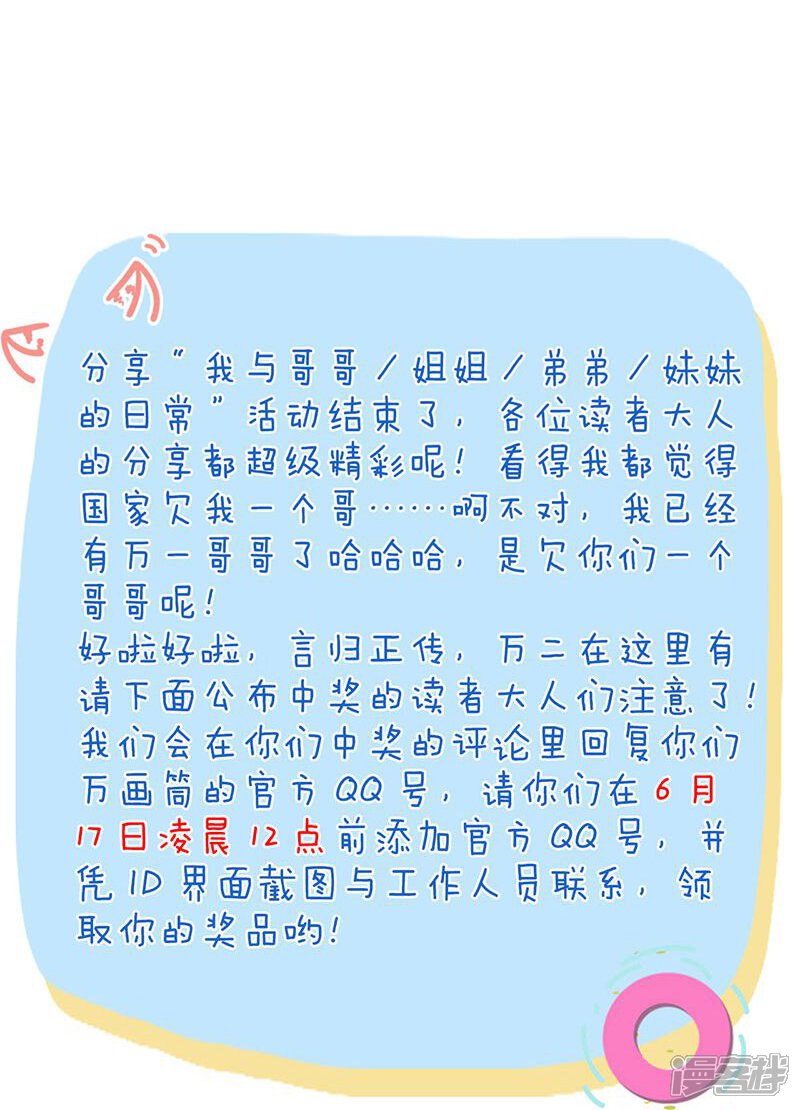 分享"我与哥哥/姐姐/弟弟/妹妹
的日常"活动结束了,各位读者大人
的分享都超级精彩呢!看得我都觉得
国家欠我一个哥……啊不对,我已经
有万一哥哥了哈哈哈,是欠你们一个
哥哥呢!
好啦好啦,言归正传,万二在这里有
请下面公布中奖的读者大人们注意了!
我们会在你们中奖的评论里回复你们
万画筒的官方QQ号,请你们在6月
17日凌晨12点前添加官方QQ号,并
凭ID界面截图与工作人员联系,领
取你的奖品哟!
漫客栈